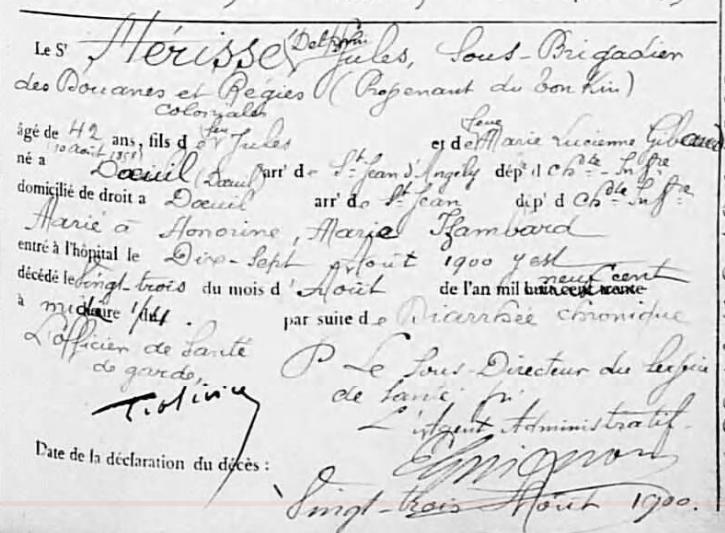 Le Sr Mérisse (Delphin) Jules, Sous-Brigadier
des Douanes et Régies (Provenant du Tonkin)
coloniales
âgé de 42 ans, fils de feu Jules et de feue Marie Lucienne Giboeud
(10 août 1858)
né à Doeuil (Doeuil) arrt de St Jean d'Angély dépt d Chte-Infre
domicilié de droit à Doeuil arrt de St Jean dépt d Chte Infre
Marié à Honorine, Marie Hambard
entré à l'hôpital le Dix-Sept Août 1900 y est
décédé le vingt-trois du mois d'Août de l'an mil huit cent trente neuf cent
à midi heure 1/4. par suite de Diarrhée chronique
L'officier de Santé P Le Sous-Directeur du Service
de garde de Santé
L'Agent Administratif
Date de la déclaration du décès :
Vingt-trois Août 1900.